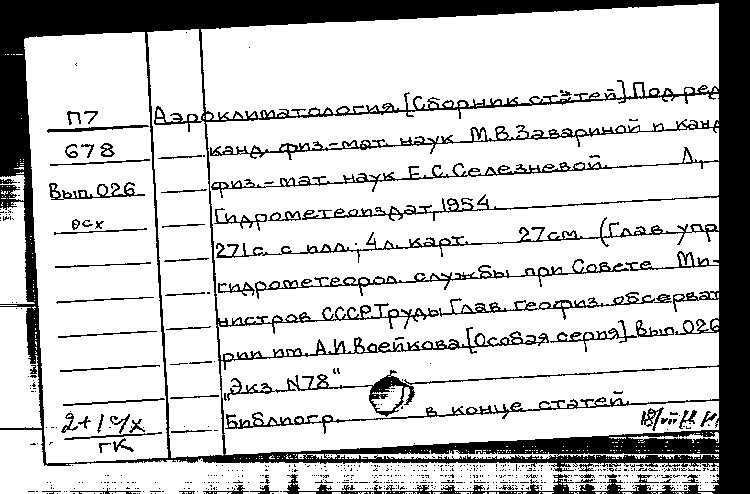 П7
678
Вып. 026
осх
Аэроклиматология. [Сборник статей] Под ред
канд. физ.-мат. наук М.В.Завариной и канд
физ.-мат. наук Е.С.Селезневой. Л.,
Гидрометеоиздат, 1954.
271с. с илл.; 4л. карт. 27см. (Глав. упр
гидрометеорол. службы при Совете Ми-
нистров СССР. Труды Глав. геофиз. обсерват
рии им. А.И.Воейкова. [Особая серия] Вып. 026
„Экз. N78".
Библиогр. в конце статей.
2+1 ч/х
ГК